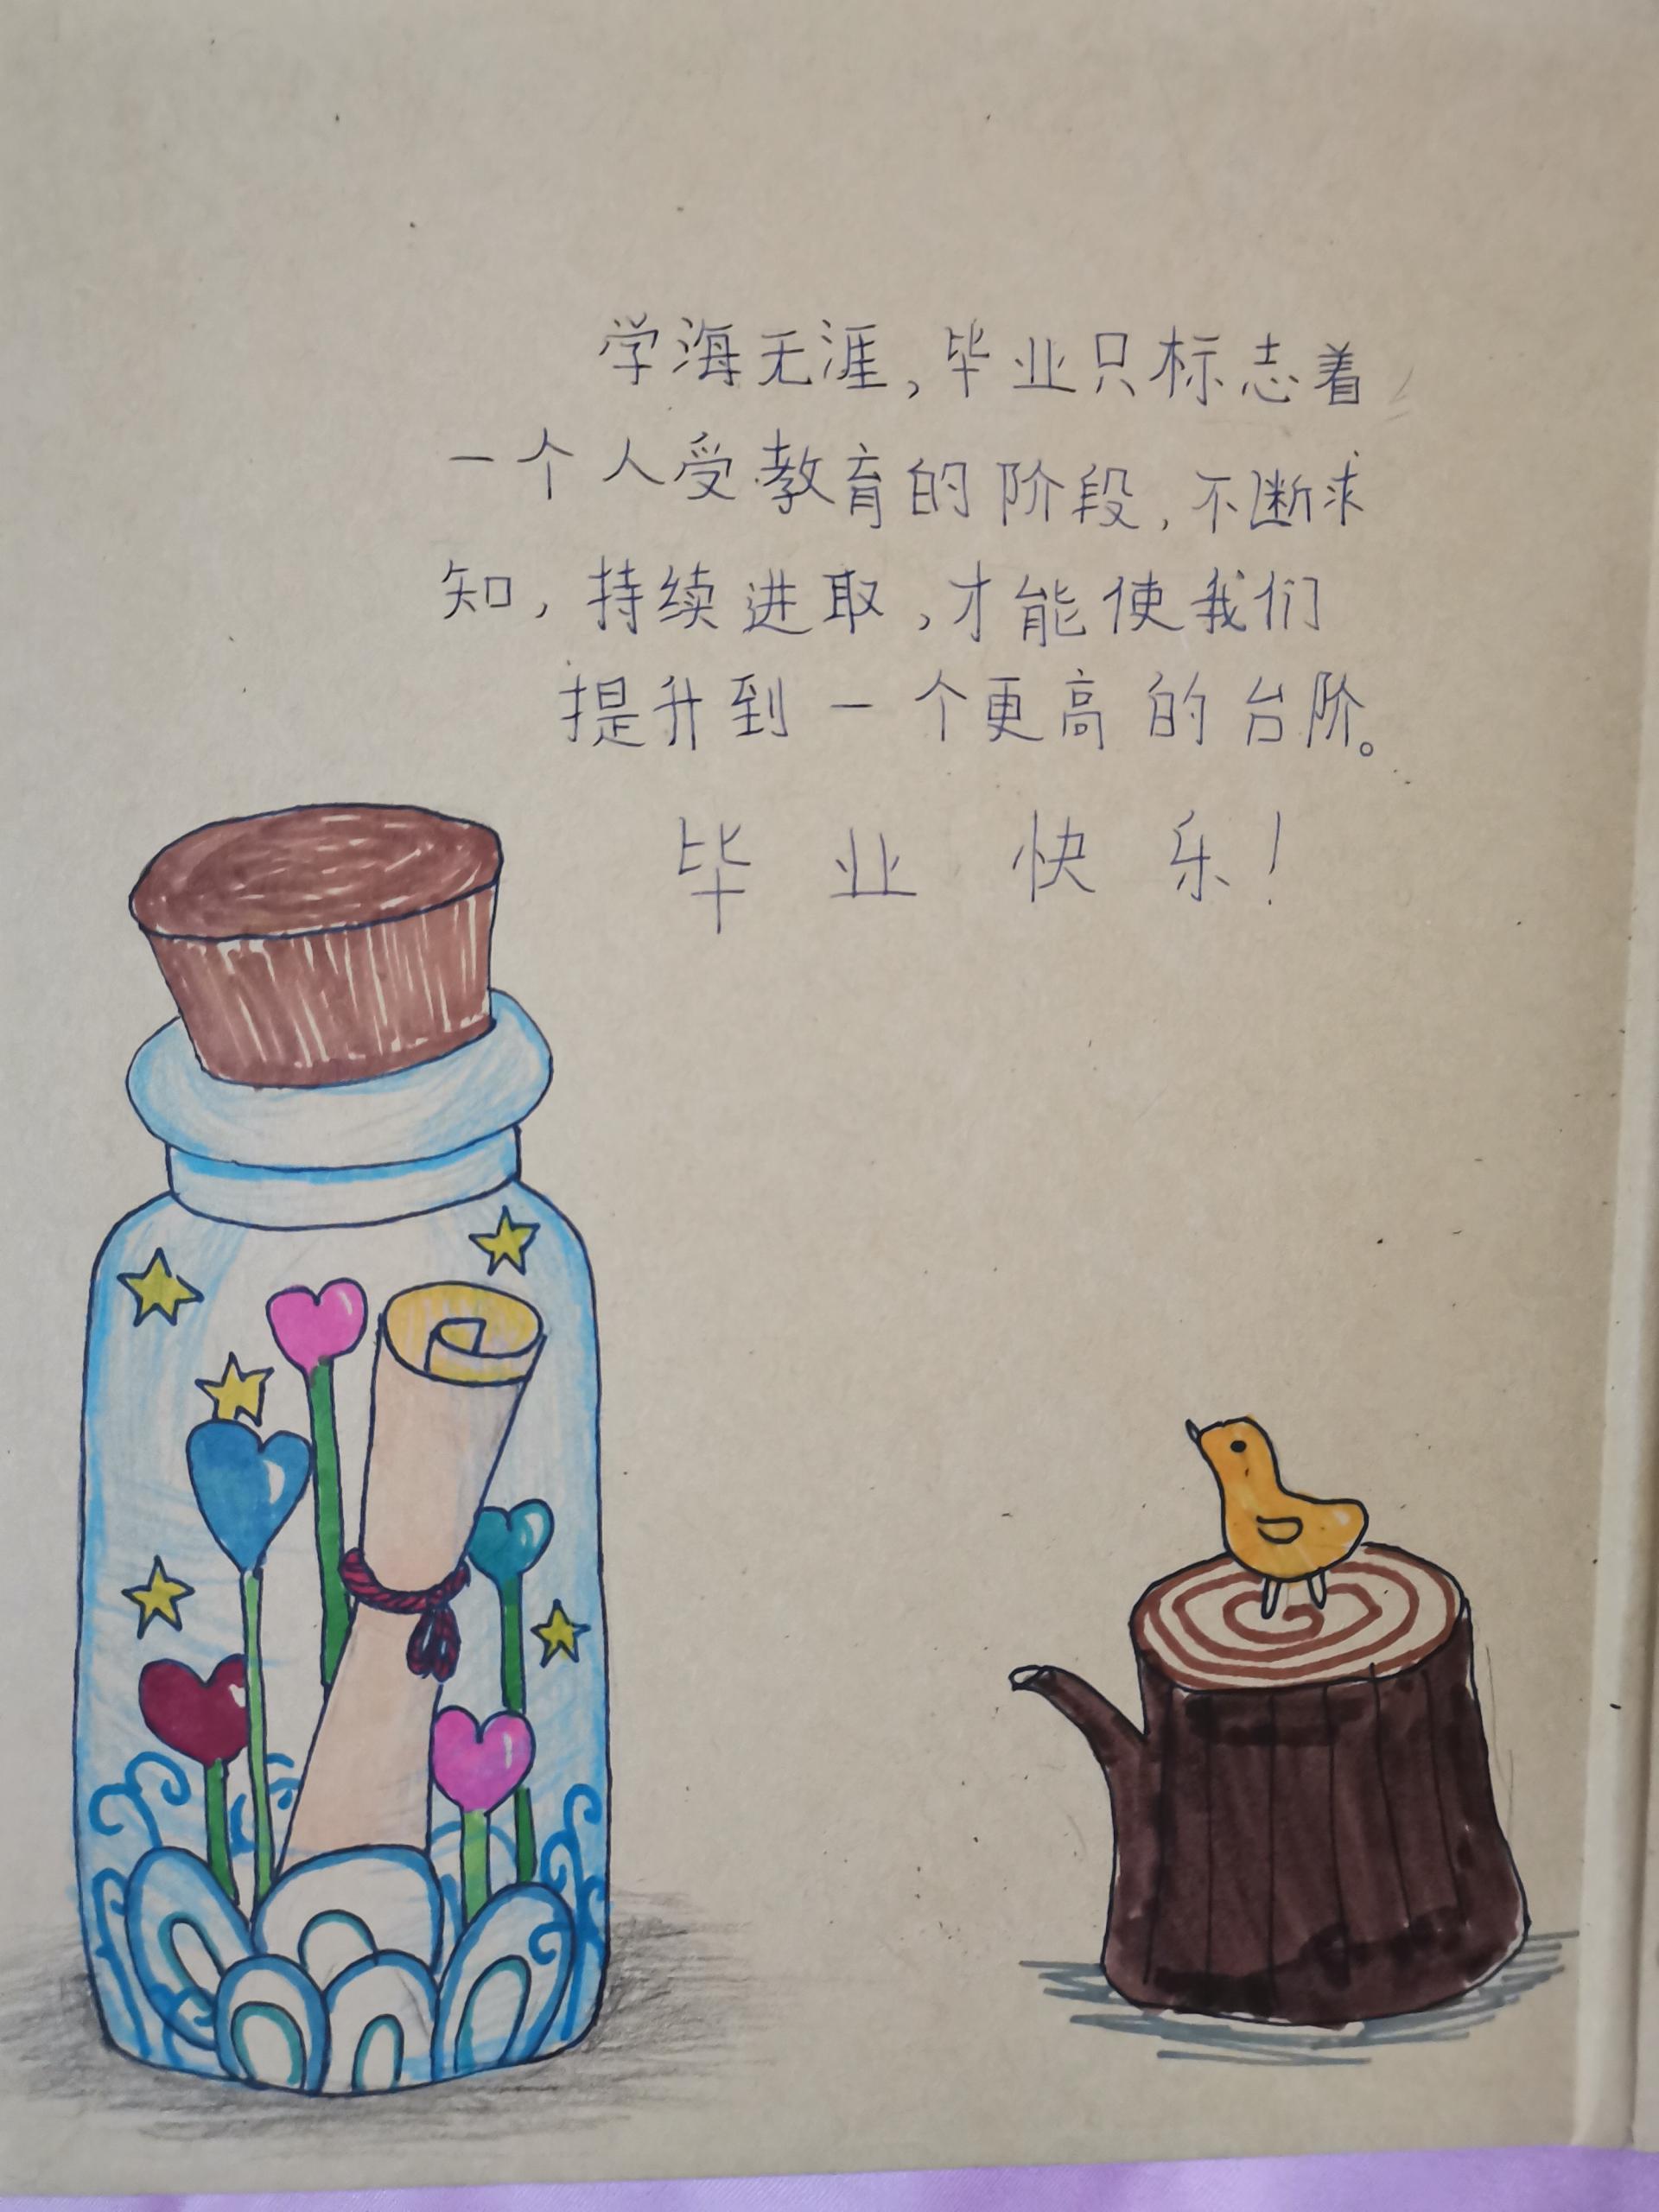 学海无涯,毕业只标志着
一个人受教育的阶段,不断求
知,持续进取,才能使我们
提升到一个更高的台阶。
毕业快乐!